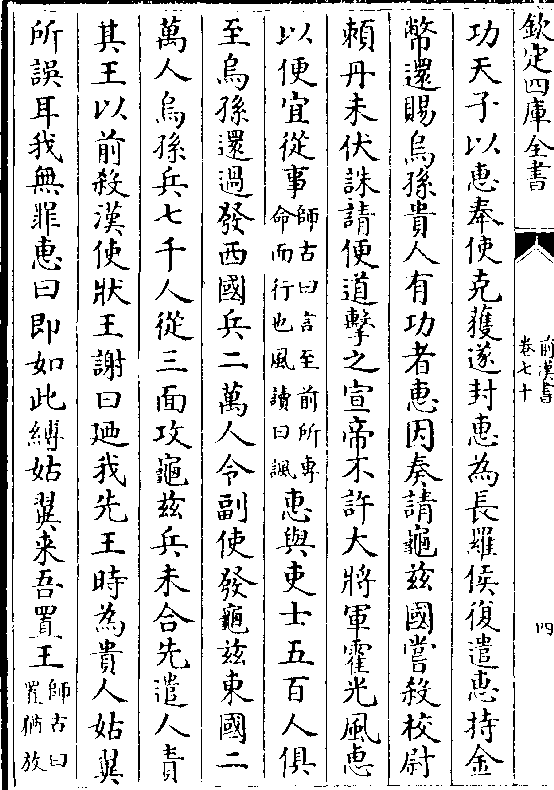 欽定四庫全書
前漢書
卷七十
四
功天子以惠奉使克獲遂封惠為長羅侯復遣惠持金
幣還賜烏孫貴人有功者惠因奏請龜兹國嘗殺校尉
頼丹未伏誅請便道擊之宣帝不許大將軍霍光風惠
以便宜從事師古曰言至前所専命而行也風讀曰諷惠與吏士五百人俱
至烏孫還過發西國兵二萬人令副使發龜兹東國二
萬人烏孫兵七千人從三面攻龜兹兵未合先遣人責
其王以前殺漢使狀王謝曰廼我先王時為貴人姑翼
所誤耳我無罪惠曰即如此縛姑翼来吾置王師古曰置猶放